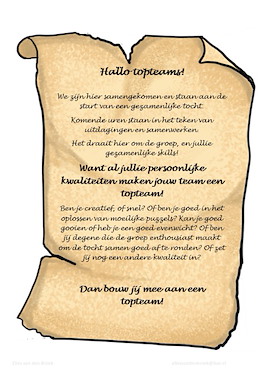 Hallo topteams!
We zijn hier samengekomen en staan aan de
start van een gezamenlijke tocht.
Komende uren staan in het teken van
uitdagingen en samenwerken.
Het draait hier om de groep, en jullie
gezamenlijke skills!
Want al jullie persoonlijke
kwaliteiten maken jouw team een
topteam!
Ben je creatief, of snel? Of ben je goed in het
oplossen van moeilijke puzzels? Kan je goed
gooien of heb je een goed evenwicht? Of ben
jij degene die de groep enthousiast maakt
om de tocht samen goed af te ronden? Of zet
jij nog een andere kwaliteit in?
Dan bouw jij mee aan een
topteam!